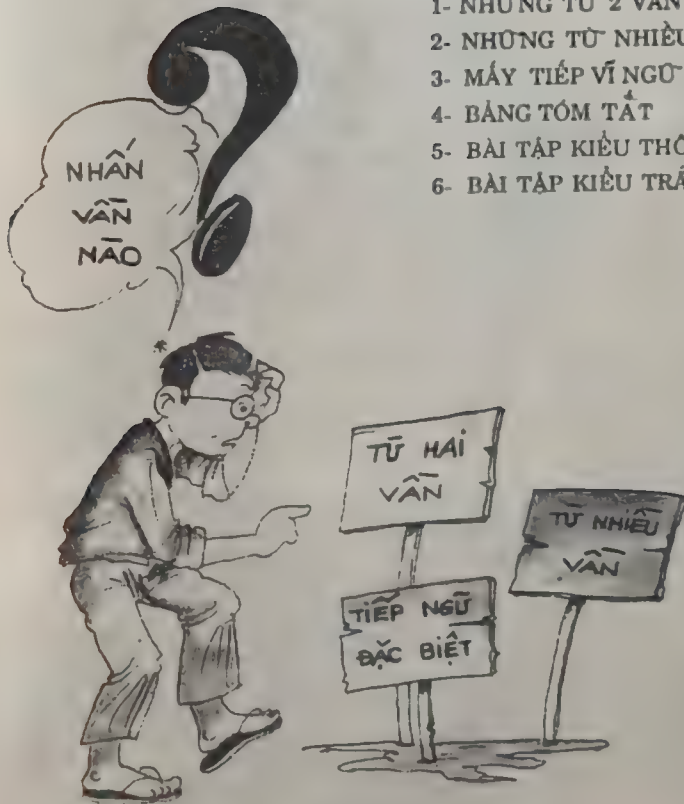 1- NHỮNG TỪ 2 VẦN
2- NHỮNG TỪ NHIỀU
3- MẤY TIẾP VĨ NGỮ
4- BẢNG TÓM TẮT
5- BÀI TẬP KIỂU
6- BÀI TẬP KIỂU
NHẤN
VẦN
NÀO
TỪ HAI
VẦN
TỪ NHIỀU
VẦN
TIẾP NGỮ
ĐẶC BIỆT